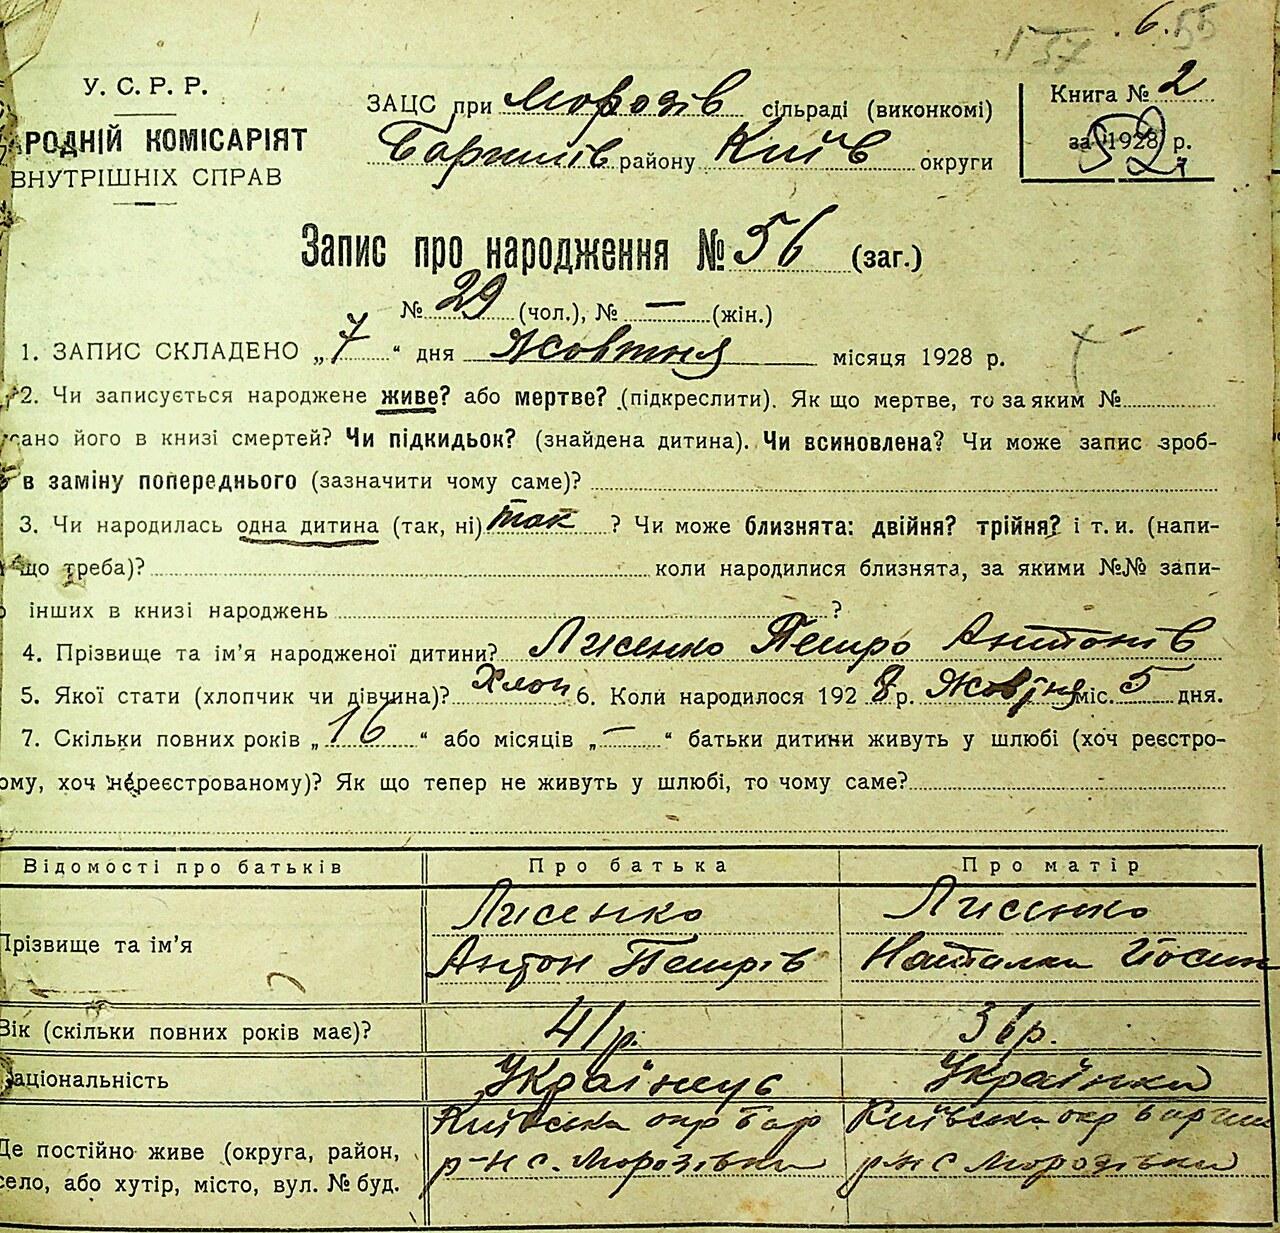 6. 55
137
У. С. Р. Р.
АРОДНІЙ КОМІСАРІЯТ
ВНУТРІШНІХ СПРАВ
ЗАЦС при Морозів сільраді (виконкомі)
Баришів району Київ округи
Книга № 2
за 1928 р.
52
Запис про народження № 56 (заг.)
№ 29 (чол.), № — (жін.)
1. ЗАПИС СКЛАДЕНО „ 7 “ дня Жовтня місяця 1928 р.
2. Чи записується народжене живе? або мертве? (підкреслити). Як що мертве, то за яким №
сано його в книзі смертей? Чи підкидьок? (знайдена дитина). Чи всиновлена? Чи може запис зроб-
в заміну попереднього (зазначити чому саме)?
3. Чи народилась одна дитина (так, ні) так ? Чи може близнята: двійня? трійня? і т. и. (напи-
що треба)? коли народилися близнята, за якими №№ запи-
інших в книзі народжень ?
4. Прізвище та ім’я народженої дитини? Лисенко Петро Антонів
5. Якої стати (хлопчик чи дівчина)? Хлоп 6. Коли народилося 1928 р. Жовтня міс. 5 дня.
7. Скільки повних років „ 16 “ або місяців „ — “ батьки дитини живуть у шлюбі (хоч реєстро-
ому, хоч нереєстрованому)? Як що тепер не живуть у шлюбі, то чому саме?
Відомості про батьків Про батька Про матір
Прізвище та ім’я
Лисенко
Антон Петрів
Лисенко
Наталка Йосип
Вік (скільки повних років має)? 41 р. 36 р.
аціональність Українець Українка
Де постійно живе (округа, район,
село, або хутір, місто, вул. № буд.
Київська окр Бар
р-н с. Морозівка
Київська окр Бариш
р-н с Морозівка